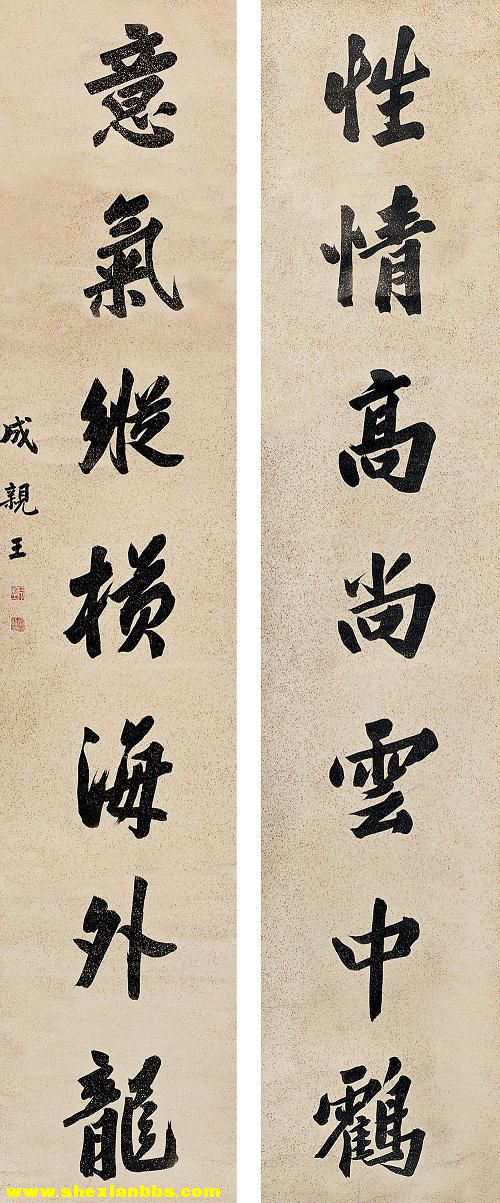 性情髙尚雲中鸖
意氣縱横海外龍
成親王
www.shexianbbs.com